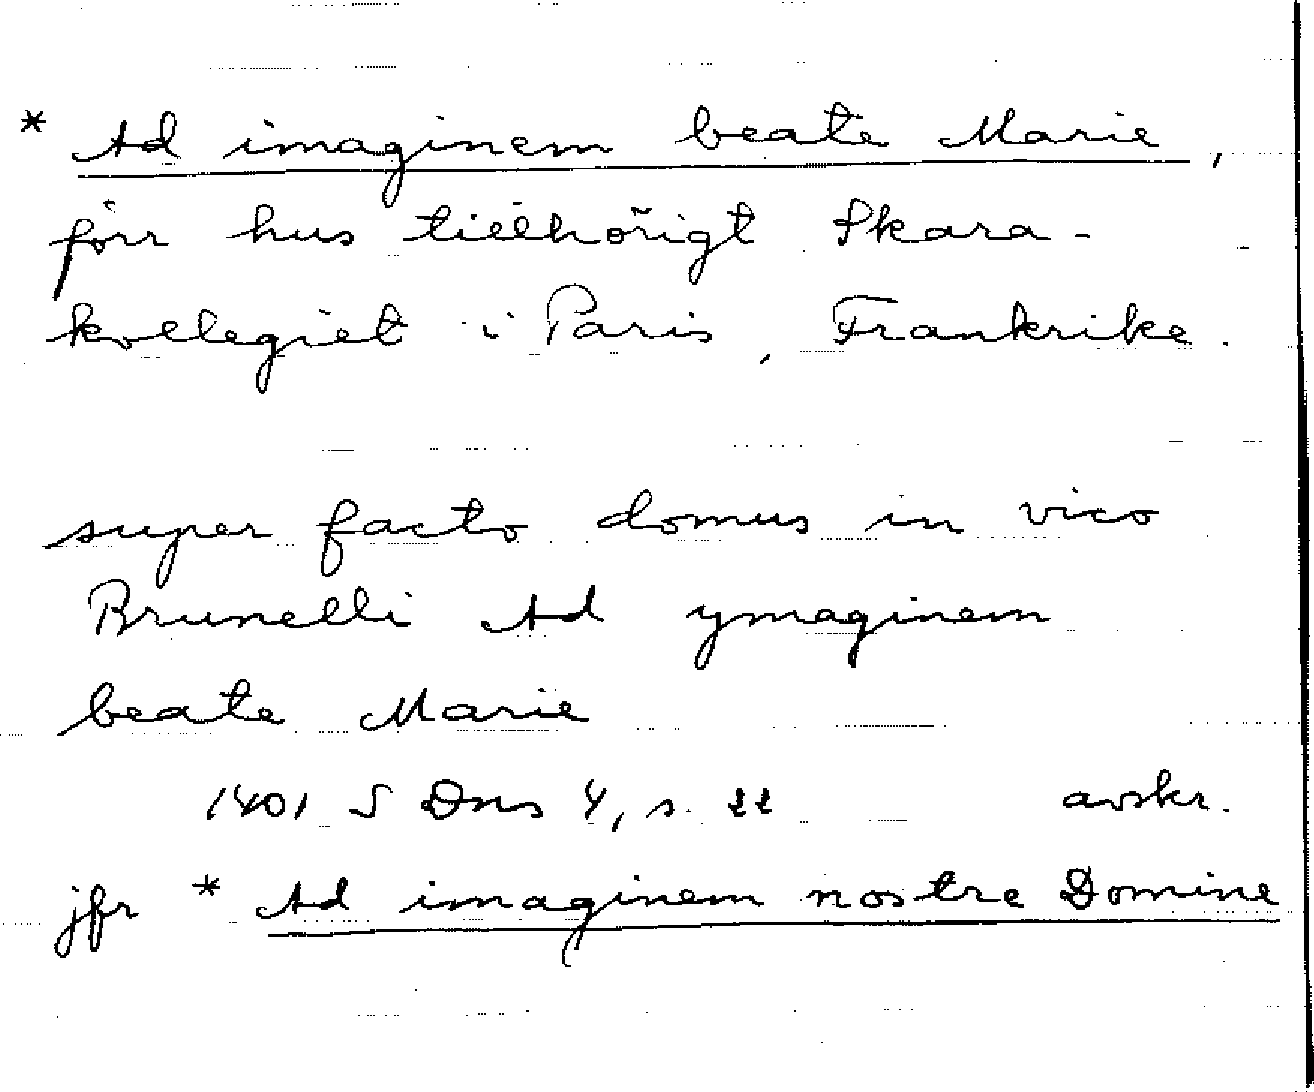 * Ad imaginem beate Marie,
förr hus tillhörigt Skara-
kollegiet i Paris, Frankrike.
super facto domus in vico
Brunelli Ad ymaginem
beate Marie
1401 5 Dns 4, s. 22 avskr.
jfr * Ad imaginem nostre Domine